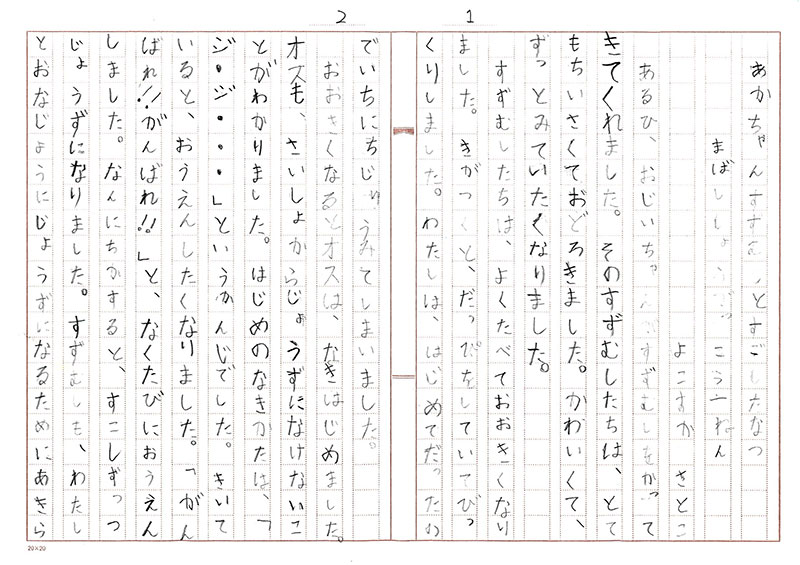 1
あかちゃんすずむしとすごしたなつ
まばししょうがっこう一ねん
よこすか　さとこ
あるひ、おじいちゃんがすずむしをかって
きてくれました。そのすずむしたちは、とて
もちいさくておどろきました。かわいくて、
ずっとみていたくなりました。
すずむしたちは、よくたべておおきくなり
ました。きがつくと、だっぴをしていてびっ
くりしました。わたしは、はじめてだったの
2
でいちにちじゅうみてしまいました。
おおきくなるとオスは、なきはじめました。
オスも、さいしょからじょうずになけないこ
とがわかりました。はじめのなきかたは、「
ジ・ジ・・・」というかんじでした。きいて
いると、おうえんしたくなりました。「がん
ばれ!!がんばれ!!」と、なくたびにおうえん
しました。なんにちかすると、すこしずつ
じょうずになりました。すずむしも、わたし
とおなじようにじょうずになるためにあきら
20×20